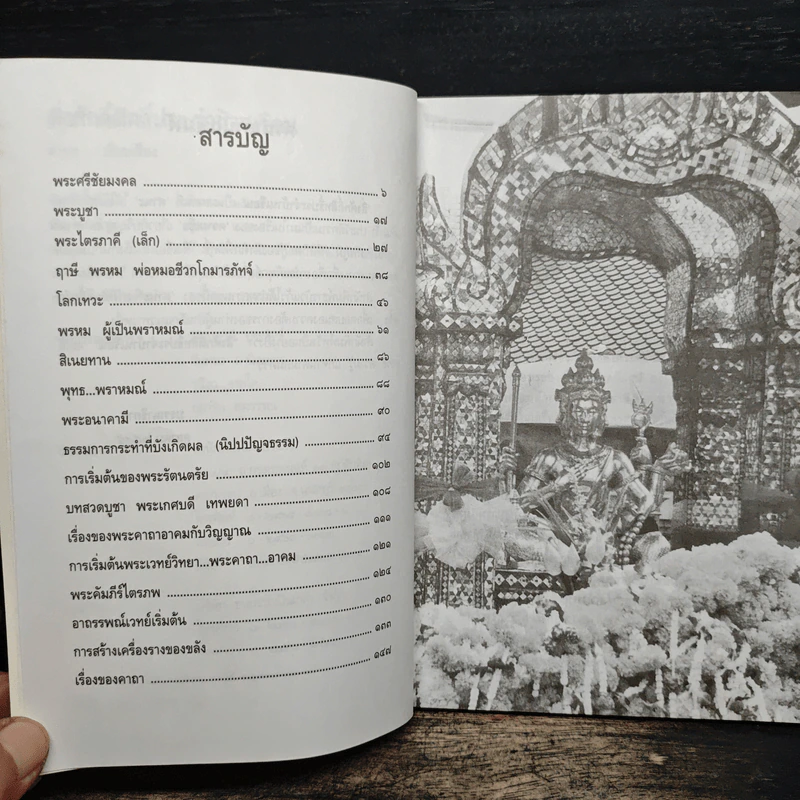 สารบัญ
พระศรีชัยมงคล ๖
พระบูชา ๑๗
พระไตรภาคี (เล็ก) ๒๗
ฤาษี พรหม พ่อหมอชีวกโกมารภัทจ์ ๓๘
โลกเทวะ ๔๖
พรหม ผู้เป็นพราหมณ์ ๖๑
สิเนยทาน ๘๖
พุทธ...พราหมณ์ ๘๘
พระอนาคามี ๙๐
ธรรมการกระทำที่บังเกิดผล (นิปปปัญจธรรม) ๙๔
การเริ่มต้นของพระรัตนตรัย ๑๐๒
บทสวดบูชา พระเกศบดี เทพยดา ๑๐๘
เรื่องของพระคาถาอาคมกับวิญญาณ ๑๑๑
การเริ่มต้นพระเวทย์วิทยา...พระคาถา...อาคม ๑๒๑
พระคัมภีร์ไตรภพ ๑๒๔
อาถรรพณ์เวทย์เริ่มต้น ๑๓๐
การสร้างเครื่องรางของขลัง ๑๓๓
เรื่องของคาถา ๑๔๗